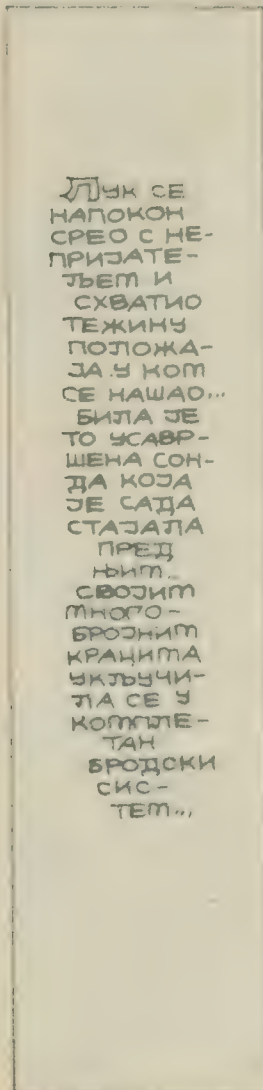 Лук се
напокон
срео с не-
пријате-
љем и
схватио
тежину
положа-
ја у ком
се нашао...
била је
то усавр-
шена сон-
да која
је сада
стајала
пред
њим..
својим
много-
бројним
крацима
укључи-
ла се у
комплe-
тан
бродски
сис-
тем...